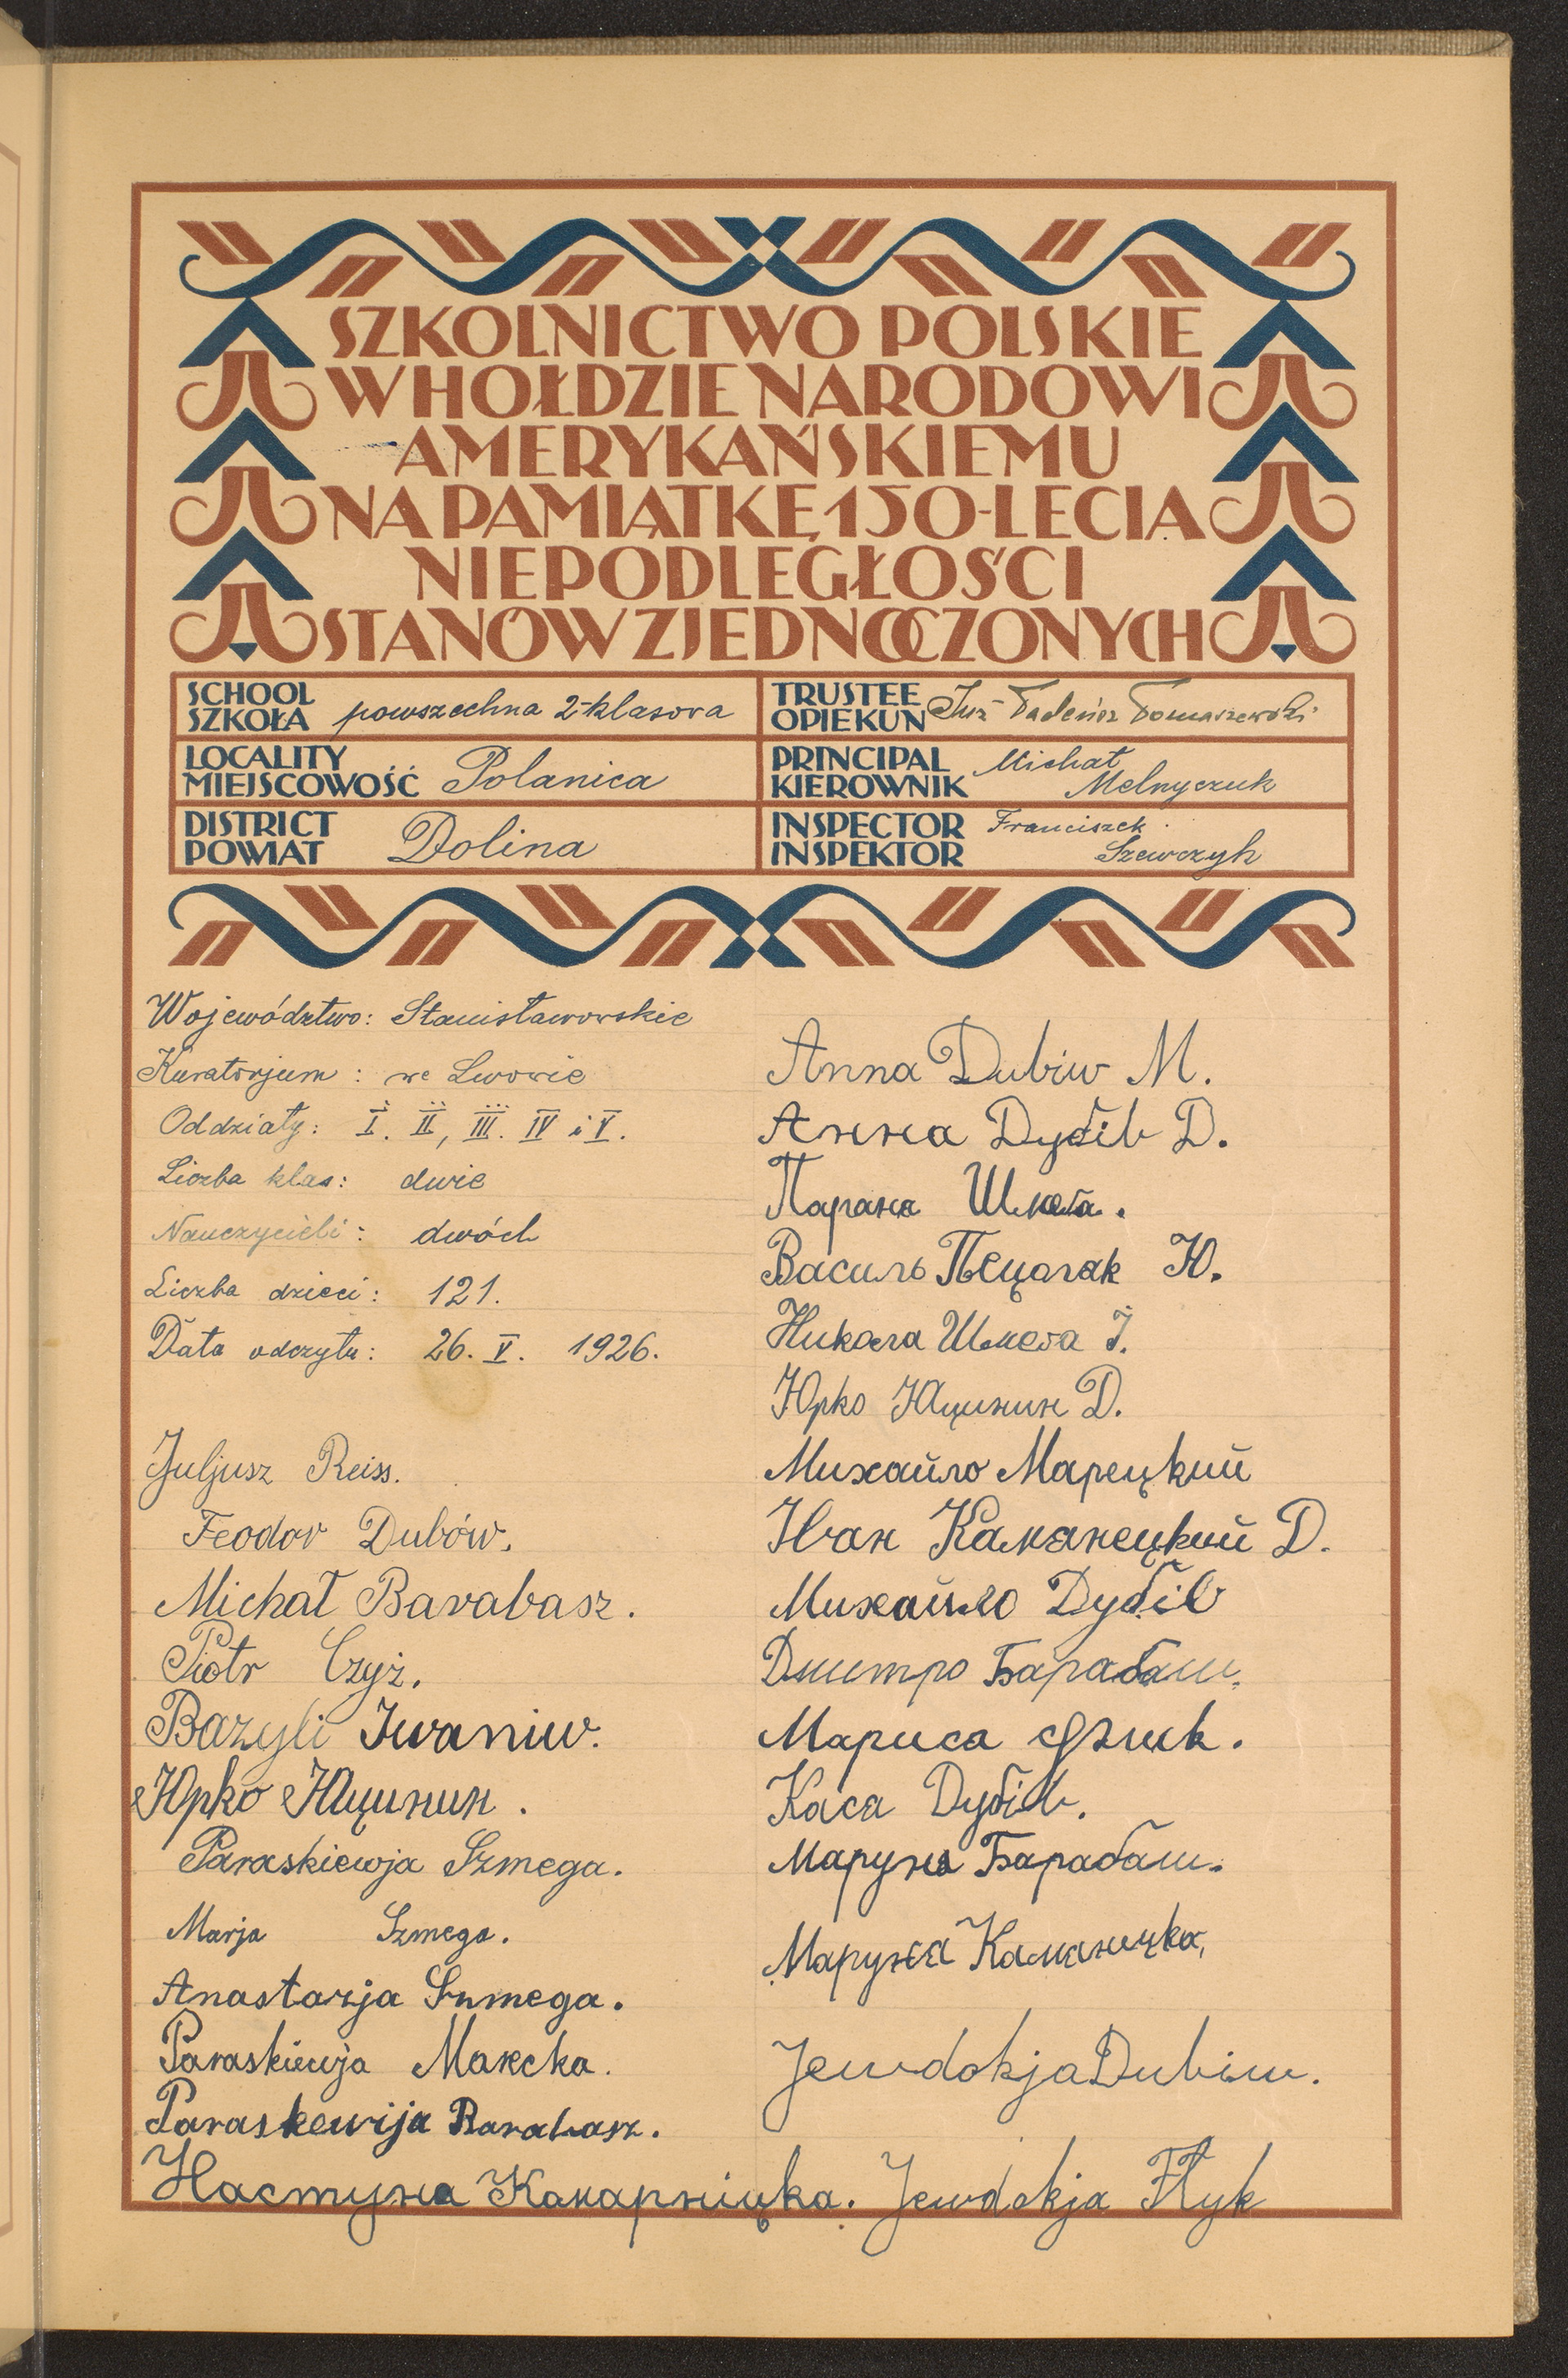 SZKOLNICTWO POLSKIE
W HOŁDZIE NARODOWI
AMERYKAŃSKIEMU
NA PAMIĄTKĘ 150-LECIA
NIEPODLEGŁOŚCI
STANÓW ZJEDNOCZONYCH
SCHOOL
SZKOŁA powszechna 2-klasowa
TRUSTEE
OPIEKUN Inż Tadeusz Tomaszewski
LOCALITY
MIEJSCOWOŚĆ Polanica
PRINCIPAL Michał
KIEROWNIK Melnyczuk
DISTRICT
POWIAT Dolina
INSPECTOR Franciszek
INSPEKTOR Szewczyk
Województwo: Stanisławowskie
Kuratorjum: we Lwowie
Oddziały: I. II, III. IV i V.
Liczba klas: dwie
Nauczycieli: dwóch
Liczba dzieci: 121.
Data odczytu: 26. V. 1926.
Juljusz Reiss.
Feodor Dubów.
Michał Barabasz.
Piotr Czyż.
Bazyli Iwaniw.
Юрко Яцинин.
Paraskiewja Szmega.
Marja Szmega.
Anastazja Szmega.
Paraskiewja
Paraskewija Barabasz.
Настуня
Anna Dubiw M.
Анна Дубів Д.
Параня Шмега.
Василь Ю.
Никола Шмега І.
Юрко Яцинин Д.
Михайло Марецкий
Иван Каманецкий Д.
Михайло Дубів
Дмитро Барабаш.
Мариса
Каса Дубів.
Маруня Барабаш.
Маруня
Jewdokja Dubiw.
Jewdokja Flyk